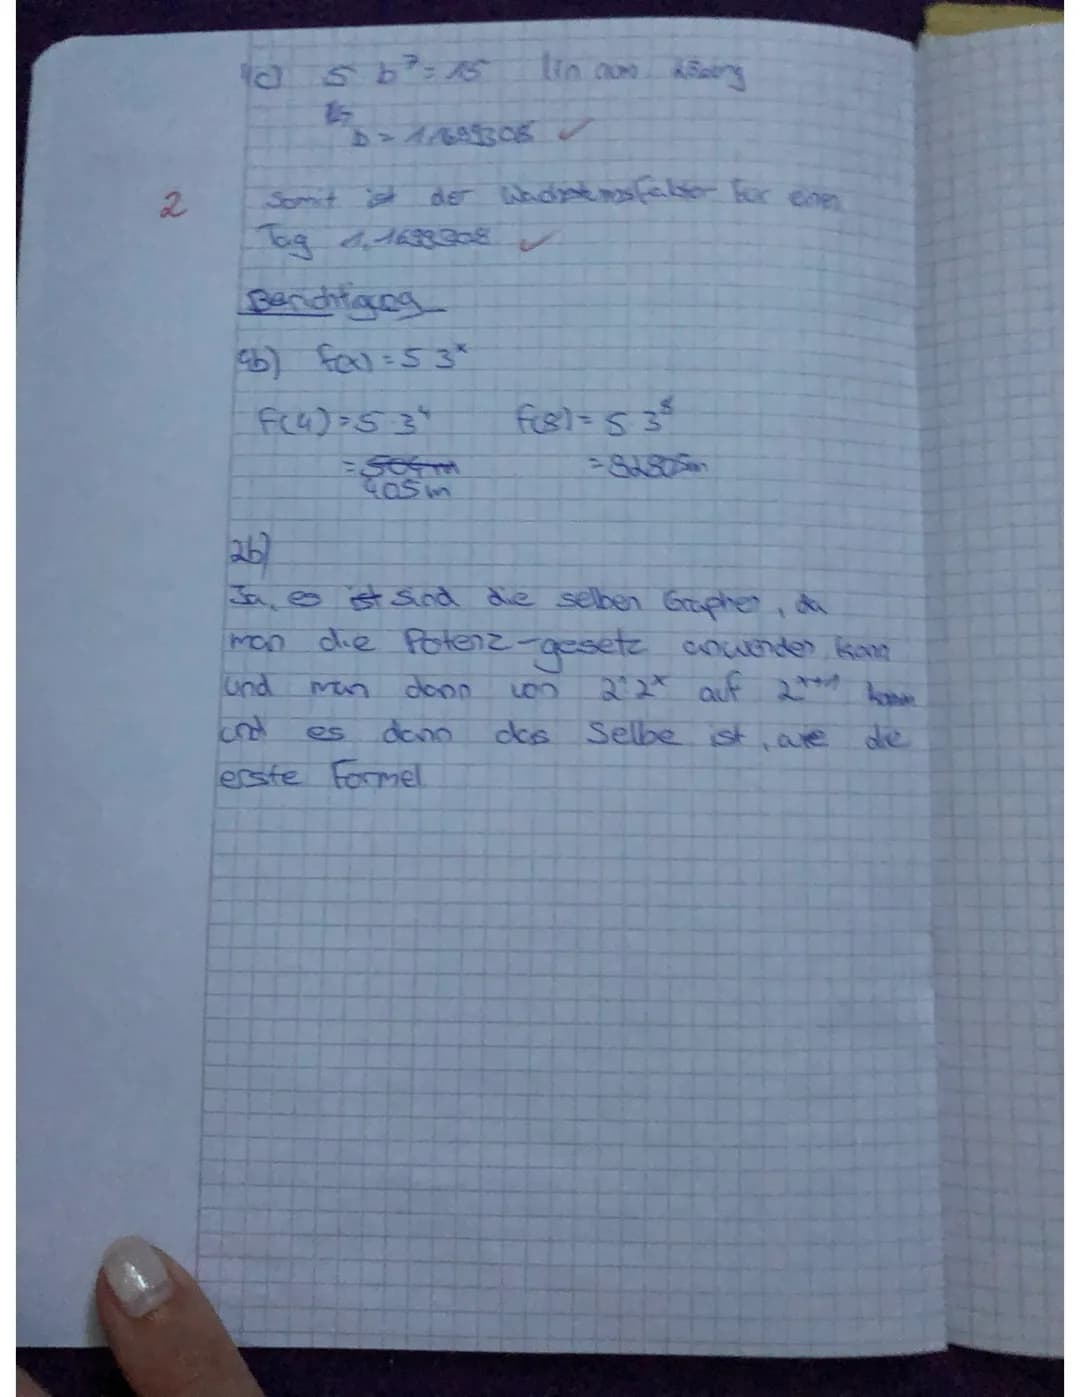 4c) 5 b⁷ = 15 lin num
b = 1,1699308 ✓
2 Somit ist der Wachstumsfaktor für einen
Tag 1,1699308 ✓
Berichtigung
4b) f(x) = 5 3ˣ
f(4) = 5 · 3⁴ f(8) = 5 3⁸
= = 32805m
405m
2b)
Ja, es ist sind die selben Graphen, da
man die Potenz-gesetz anwenden kann
und man dann von 2¹ 2ˣ auf 2ˣ⁺¹ kommt
und es dann das Selbe ist, wie die
erste Formel